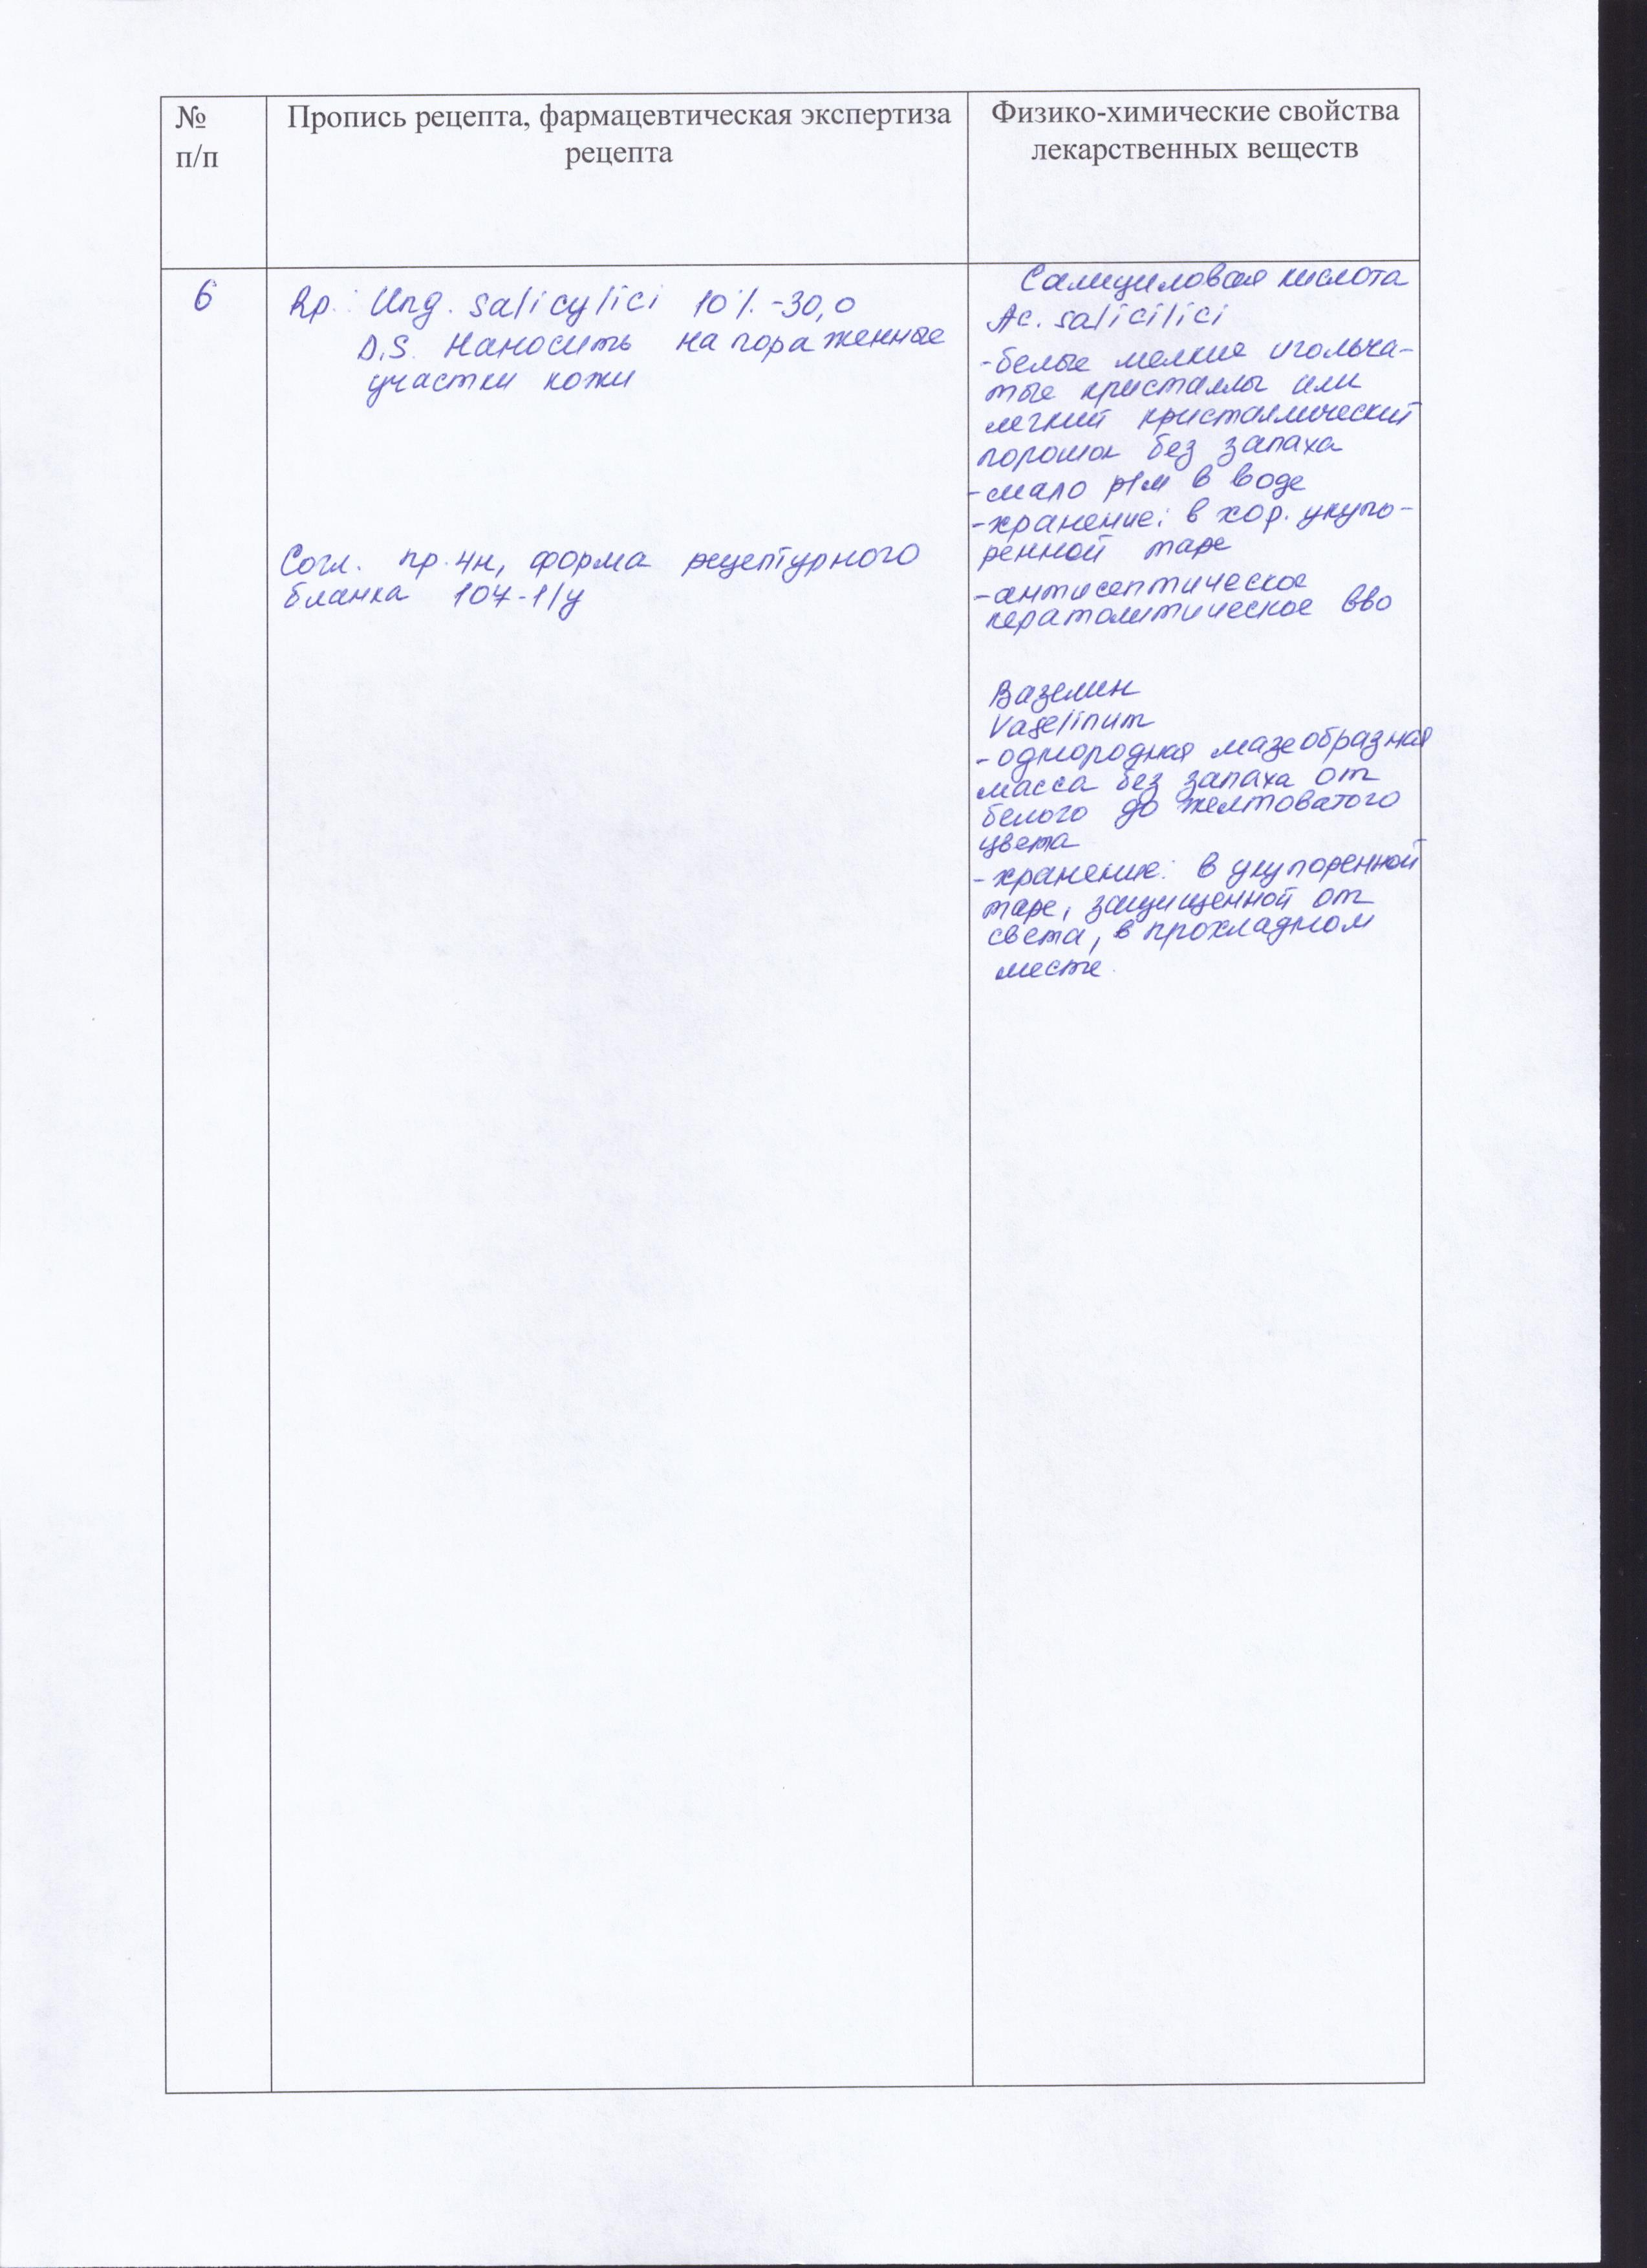 №
п/п
Пропись рецепта, фармацевтическая экспертиза
рецепта
Физико-химические свойства
лекарственных веществ
6
Rp.: Ung. salicylici 10% -30,0
D.S. Наносить на пораженные
участки кожи
Согл. пр. 4н, форма рецептурного
бланка 107-1/у
Салициловая кислота
Ac. salicilici
-белые мелкие игольча-
тые кристаллы или
легкий кристаллический
порошок без запаха
-мало р/м в воде
-хранение: в хор. укупо-
ренной таре
-антисептическое
кератолитическое вво
Вазелин
Vaselinum
-однородная мазеобразная
масса без запаха от
белого до желтоватого
цвета
-хранение: в укупоренной
таре, защищенной от
света, в прохладном
месте.